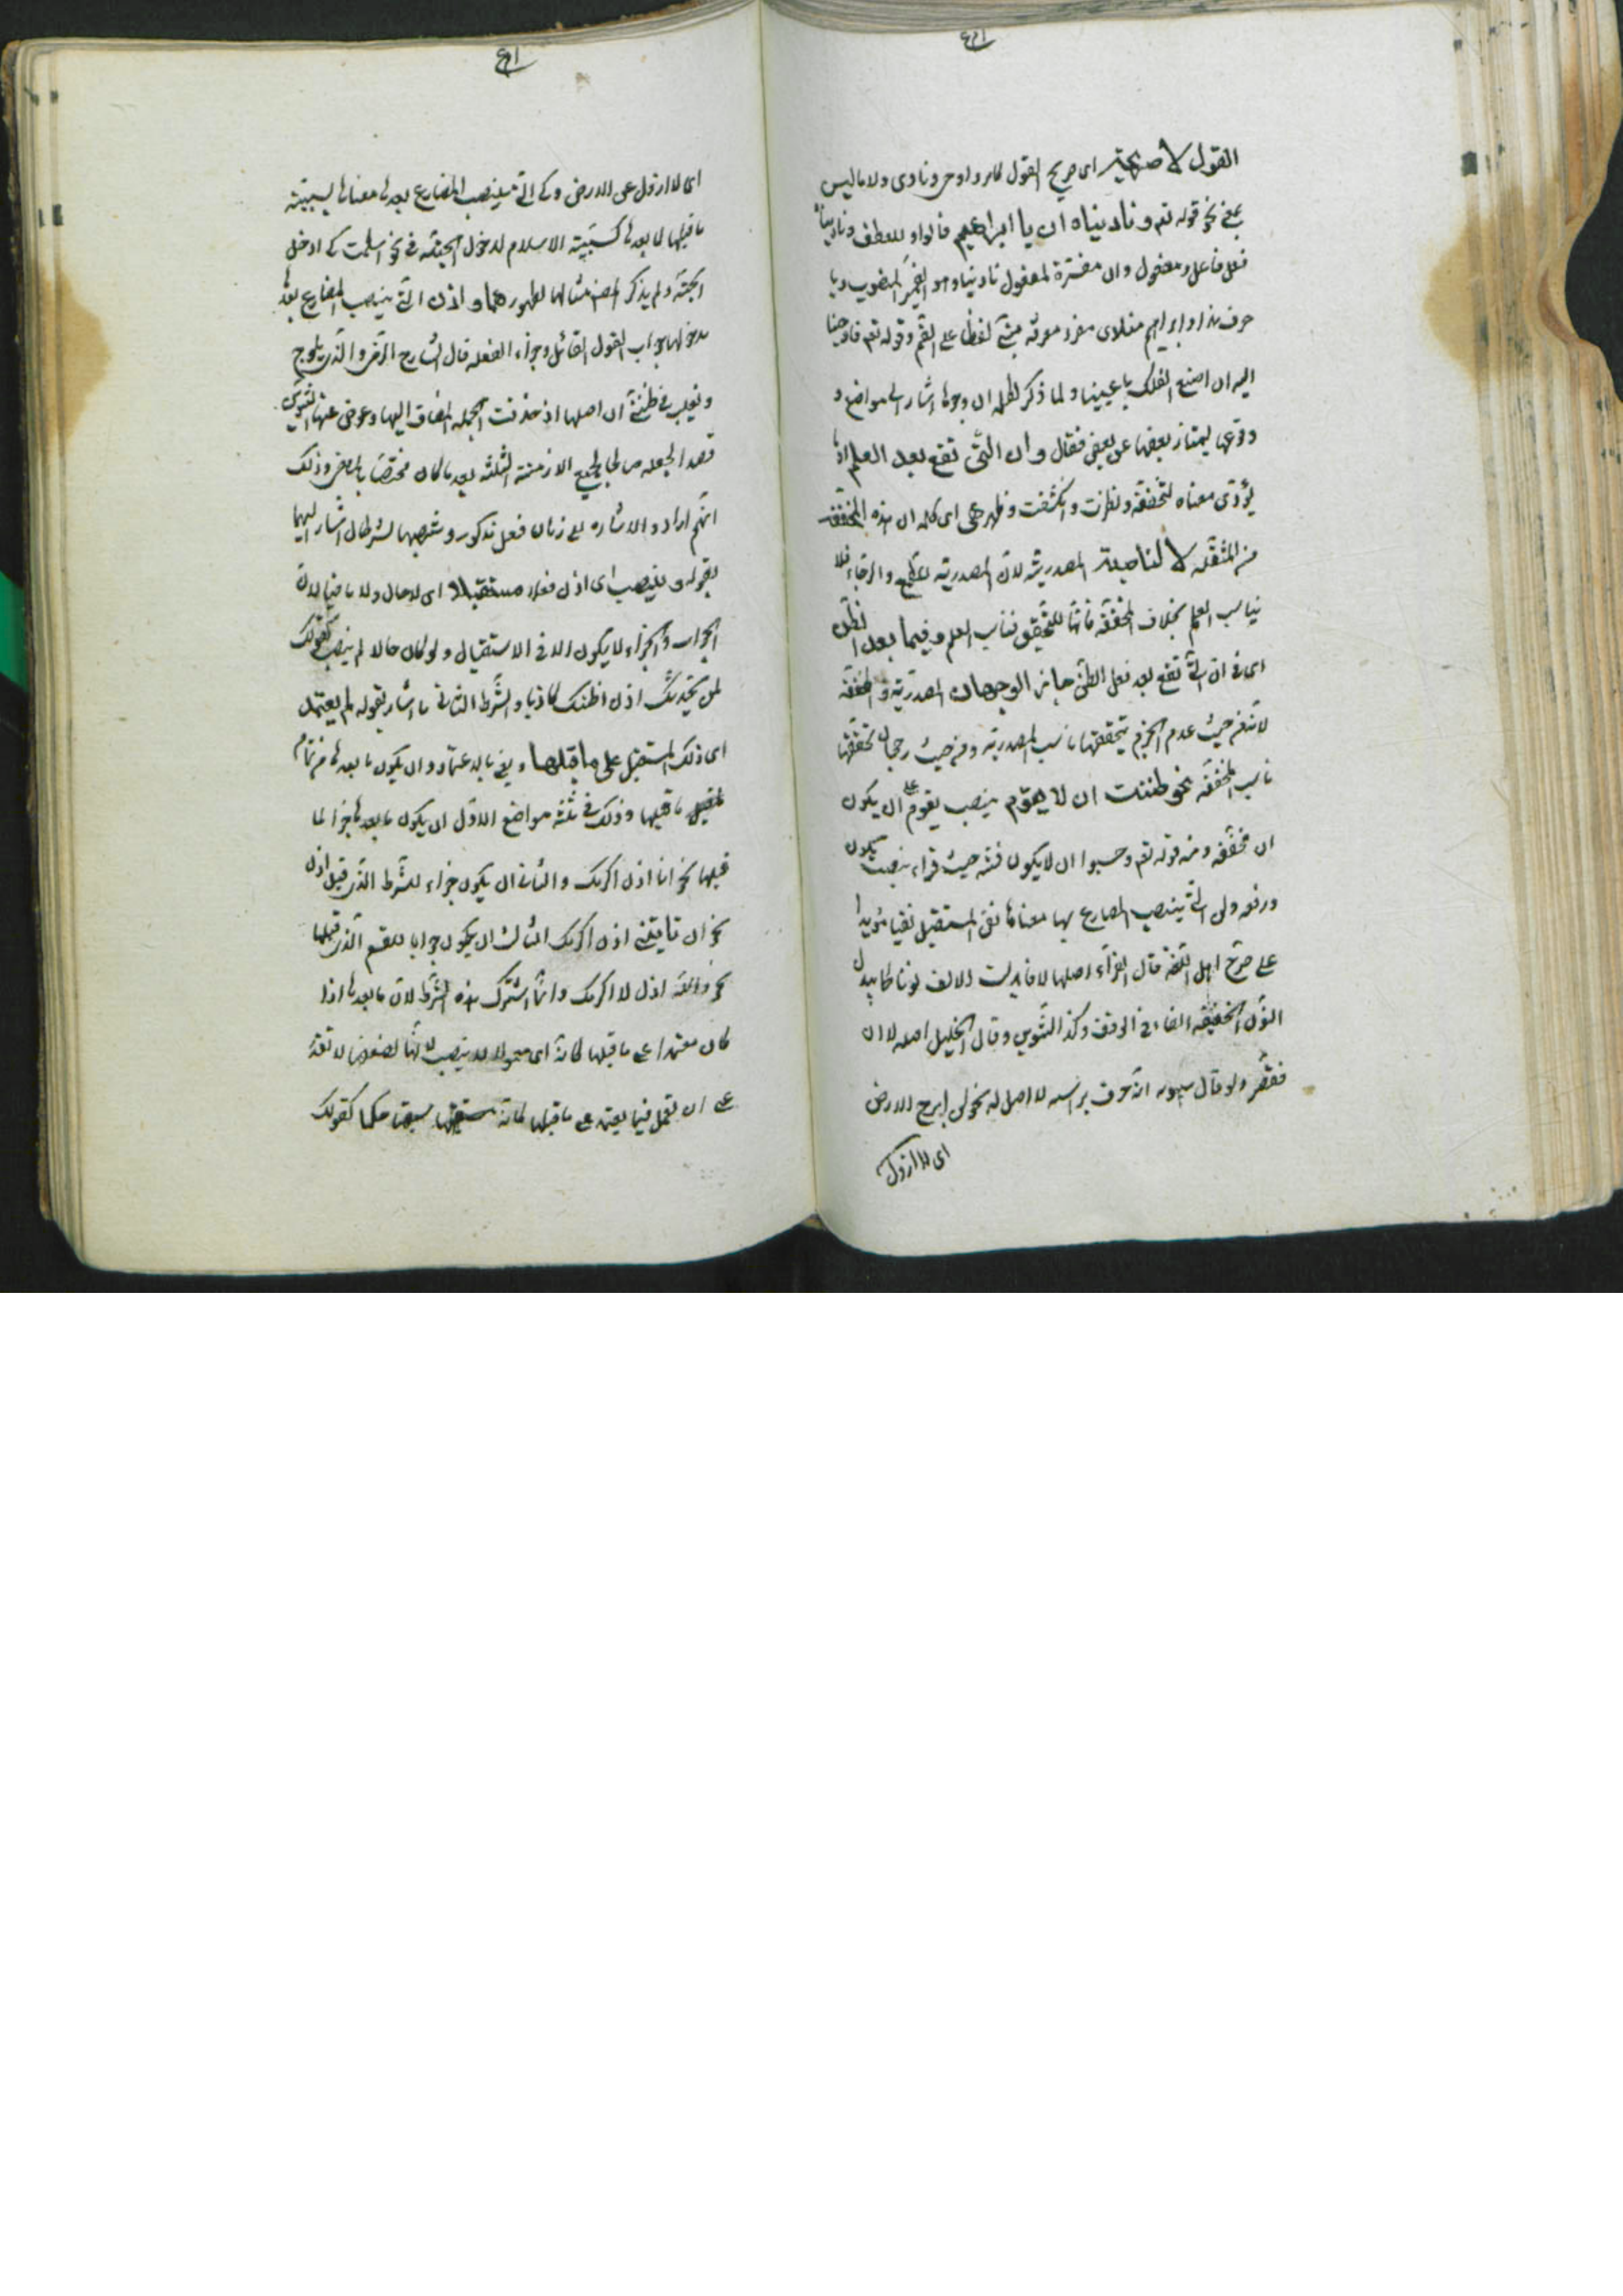 القول لا صريحة اى صريح القول كامر واوحى ونادى ولا ما ليس
بمعنى نحو قوله تعم وناديناه ان يا ابراهيم فالواو للعطف ونادينا
فعل فاعل ومفعول وان مفسرة لمفعول نادينا وهو الضمير المنصوب ويا
حرف نداء وابراهيم منادى مفرد معرفة مبنى لفظا على الضم وقوله تعم فاوحينا
اليه ان اصنع الفلك باعيننا ولما ذكر لكلمة ان وجوها اشار الى مواضع و
وقوعها ليمتاز بعضها عن بعض فقال وان التى تقع بعد العلم اذا
يؤدى معناه لتحققه ونظرت وانكشفت وظهر هى اى كلمة ان هذه المخففة
من المثقلة لا لناصبة المصدرية لان المصدرية للطمع والرجاء فلا
يناسب العلم بخلاف المخففة فانها للتحقيق فناسب العلم وفيما بعد الظن
اى فى ان التى تقع بعد فعل الظن جائز الوجهان المصدرية والمخففة
لانه من حيث عدم الجزم بتحققها ناسب المصدرية ومن حيث رجحان تحققها
ناسب المخففة نحو ظننت ان لا يقوم بنصب يقوم على ان يكون
ان مخففة ومنه قوله تعم وحسبوا ان لا يكون فتنة حيث قراء بنصب يكون
ورفعه ولن التى ينصب المضارع بها معناها نفى المستقبل نفيا مؤبدا
على صرح اهل اللغة قال الفراء اصلها لا فابدلت الالف نونا كما يبدل
النون الخفيفة الفا فى الوقف وكذا التنوين وقال الخليل اصله لا ان
فقصر ولو قال سيبويه انه حرف براسه لا اصل له نحو لن ابرح الارض
اى لا ازول
اى لا ازول على الارض وكى التى ينصب المضارع بعدها معناها سببية
ما قبلها لما بعدها كسببية الاسلام لدخول الجنة فى نحو اسلمت كى ادخل
الجنة ولم يذكر المصنف مثالها لظهورهما واذن التى ينصب المضارع بعدها
مدخولها جواب القول القائل وجزاء الفعله قال الشارح الرضى والذى يلوح
ويغلب فى ظنى ان اصلها اذ حذفت الجملة المضاف اليها وعوض عنها التنوين
قصد الجعله صالحا لجميع الازمنة الثلثة بعد ما كان مختصا بالماضى وذلك
انهم اراد والاشارة الى زمان فعل مذكور ونصبها بشرطان اشار اليهما
بقوله وينصب اى اذن فعلا مستقبلا اى لا حال ولا ماضيا لان
الجواب والجزاء لا يكون الا فى الاستقبال ولو كان حالا لم ينصب كقولك
لمن يحدثك اذن اظنك كاذبا والشرط الثانى ما اشار بقوله لم يعتمد
اى ذلك المستقبل على ما قبلها ويعنى بالاعتماد ان يكون ما بعدها من تمام
ما قبلها وذلك فى ثلثة مواضع الاول ان يكون ما بعدها خبرا لما
قبلها نحو انا اذن اكرمك والثانى ان يكون جزاء للشرط الذى قبل اذن
نحو ان تاتينى اذن اكرمك الثالث ان يكون جوابا للقسم الذى قبلها
نحو والله اذن لا اكرمك وانما اشترط هذه الشرط لان ما بعدها اذا
كان معتمدا على ما قبلها كانه اى معمولا له ينصب لانها لضعفها لا تقدر
على ان تعمل فيما يعتمد على ما قبلها لانه سبقها حكما كقولك